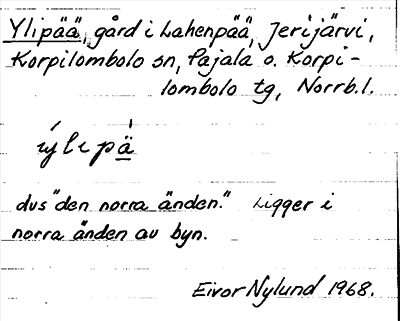 Ylipää, gård i Lahenpää, Jerijärvi,
Korpilombolo sn, Pajala o. Korpi-
lombolo tg, Norrb.l.
ýlepä̀
dvs "den norra änden." Ligger i
norra änden av byn.
Eivor Nylund 1968.